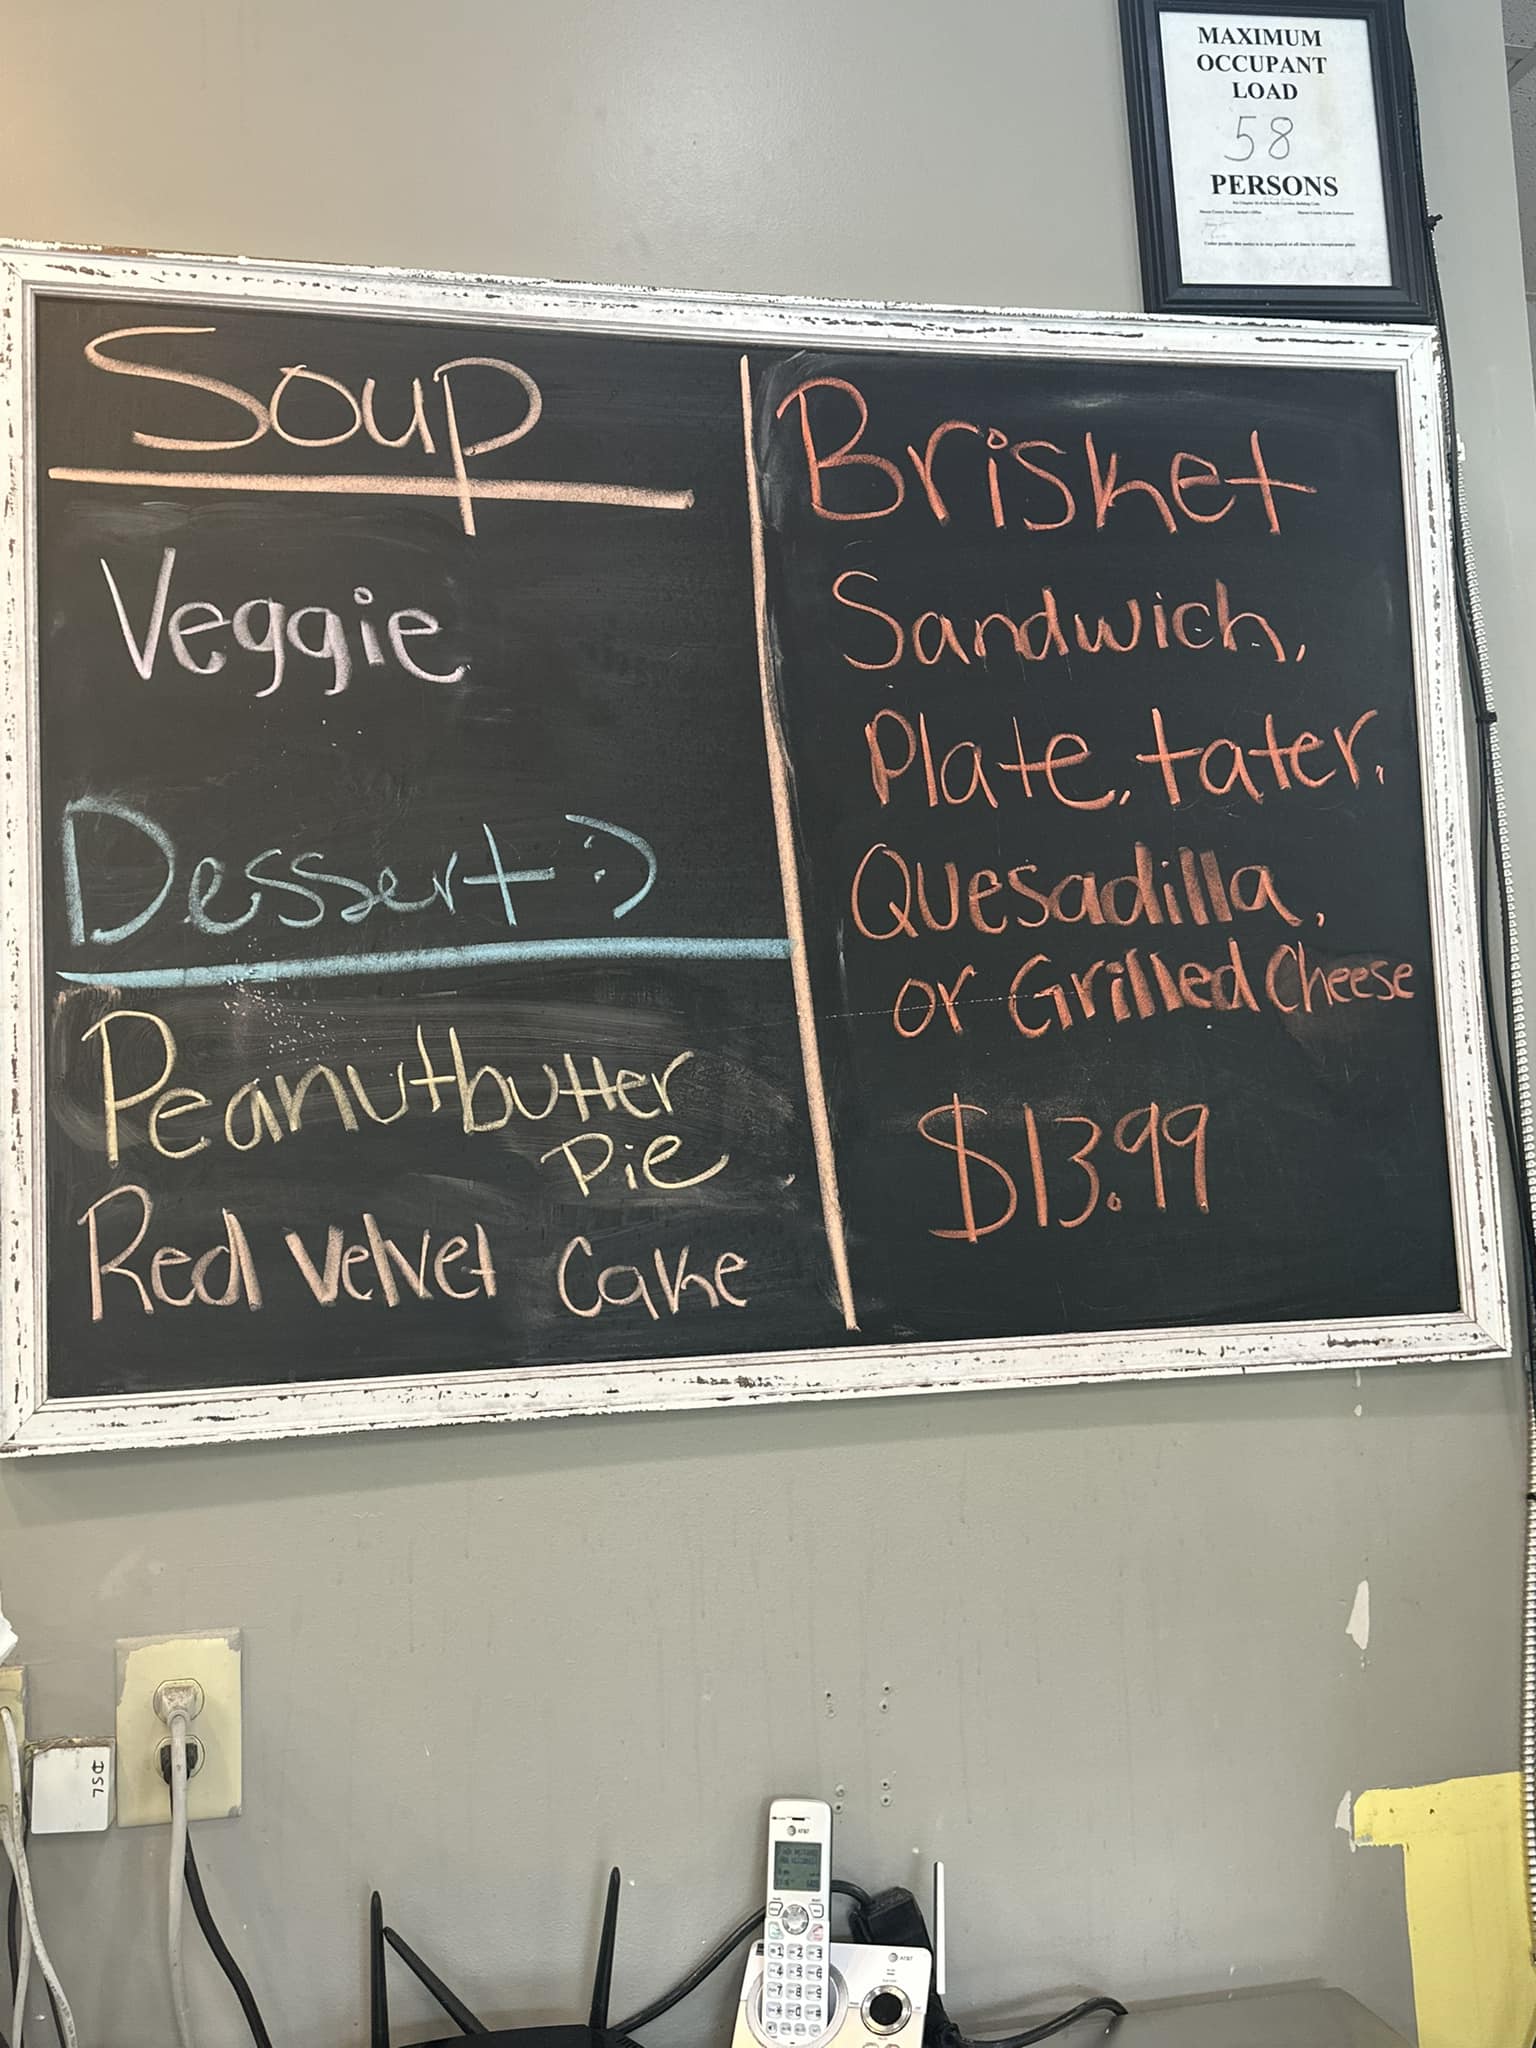 MAXIMUM
OCCUPANT
LOAD
58
PERSONS
Soup
Veggie
Dessert :)
Peanutbutter
Pie
Red Velvet Cake
Brisket
Sandwich,
Plate, tater,
Quesadilla,
or Grilled Cheese
$13.99
DSL
AT&T
AT&T
1 2 3
4 5 6
7 8 9
* 0 #